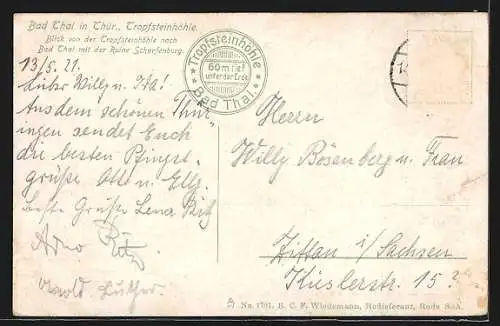 Bad Thal in Thür., Tropfsteinhöhle.
Blick von der Tropfsteinhöhle nach
Bad Thal mit der Ruine Scharfenburg.
13/5. 21.
Lieber Willy u. Ida!
Aus dem schönen Thür-
ingen sendet Euch
die besten Pfingst-
grüße Otto u. Elly.
beste Grüße Lena
Arno
Arnold Luther.
Tropfsteinhöhle
60 m tief
unter der Erde
Bad Thal.
Herrn
Willy Bösenberg u. Frau
Zittau i/Sachsen
15
No. 1701. B. C. F. Wiedemann, Hoflieferant, Roda S.-A.